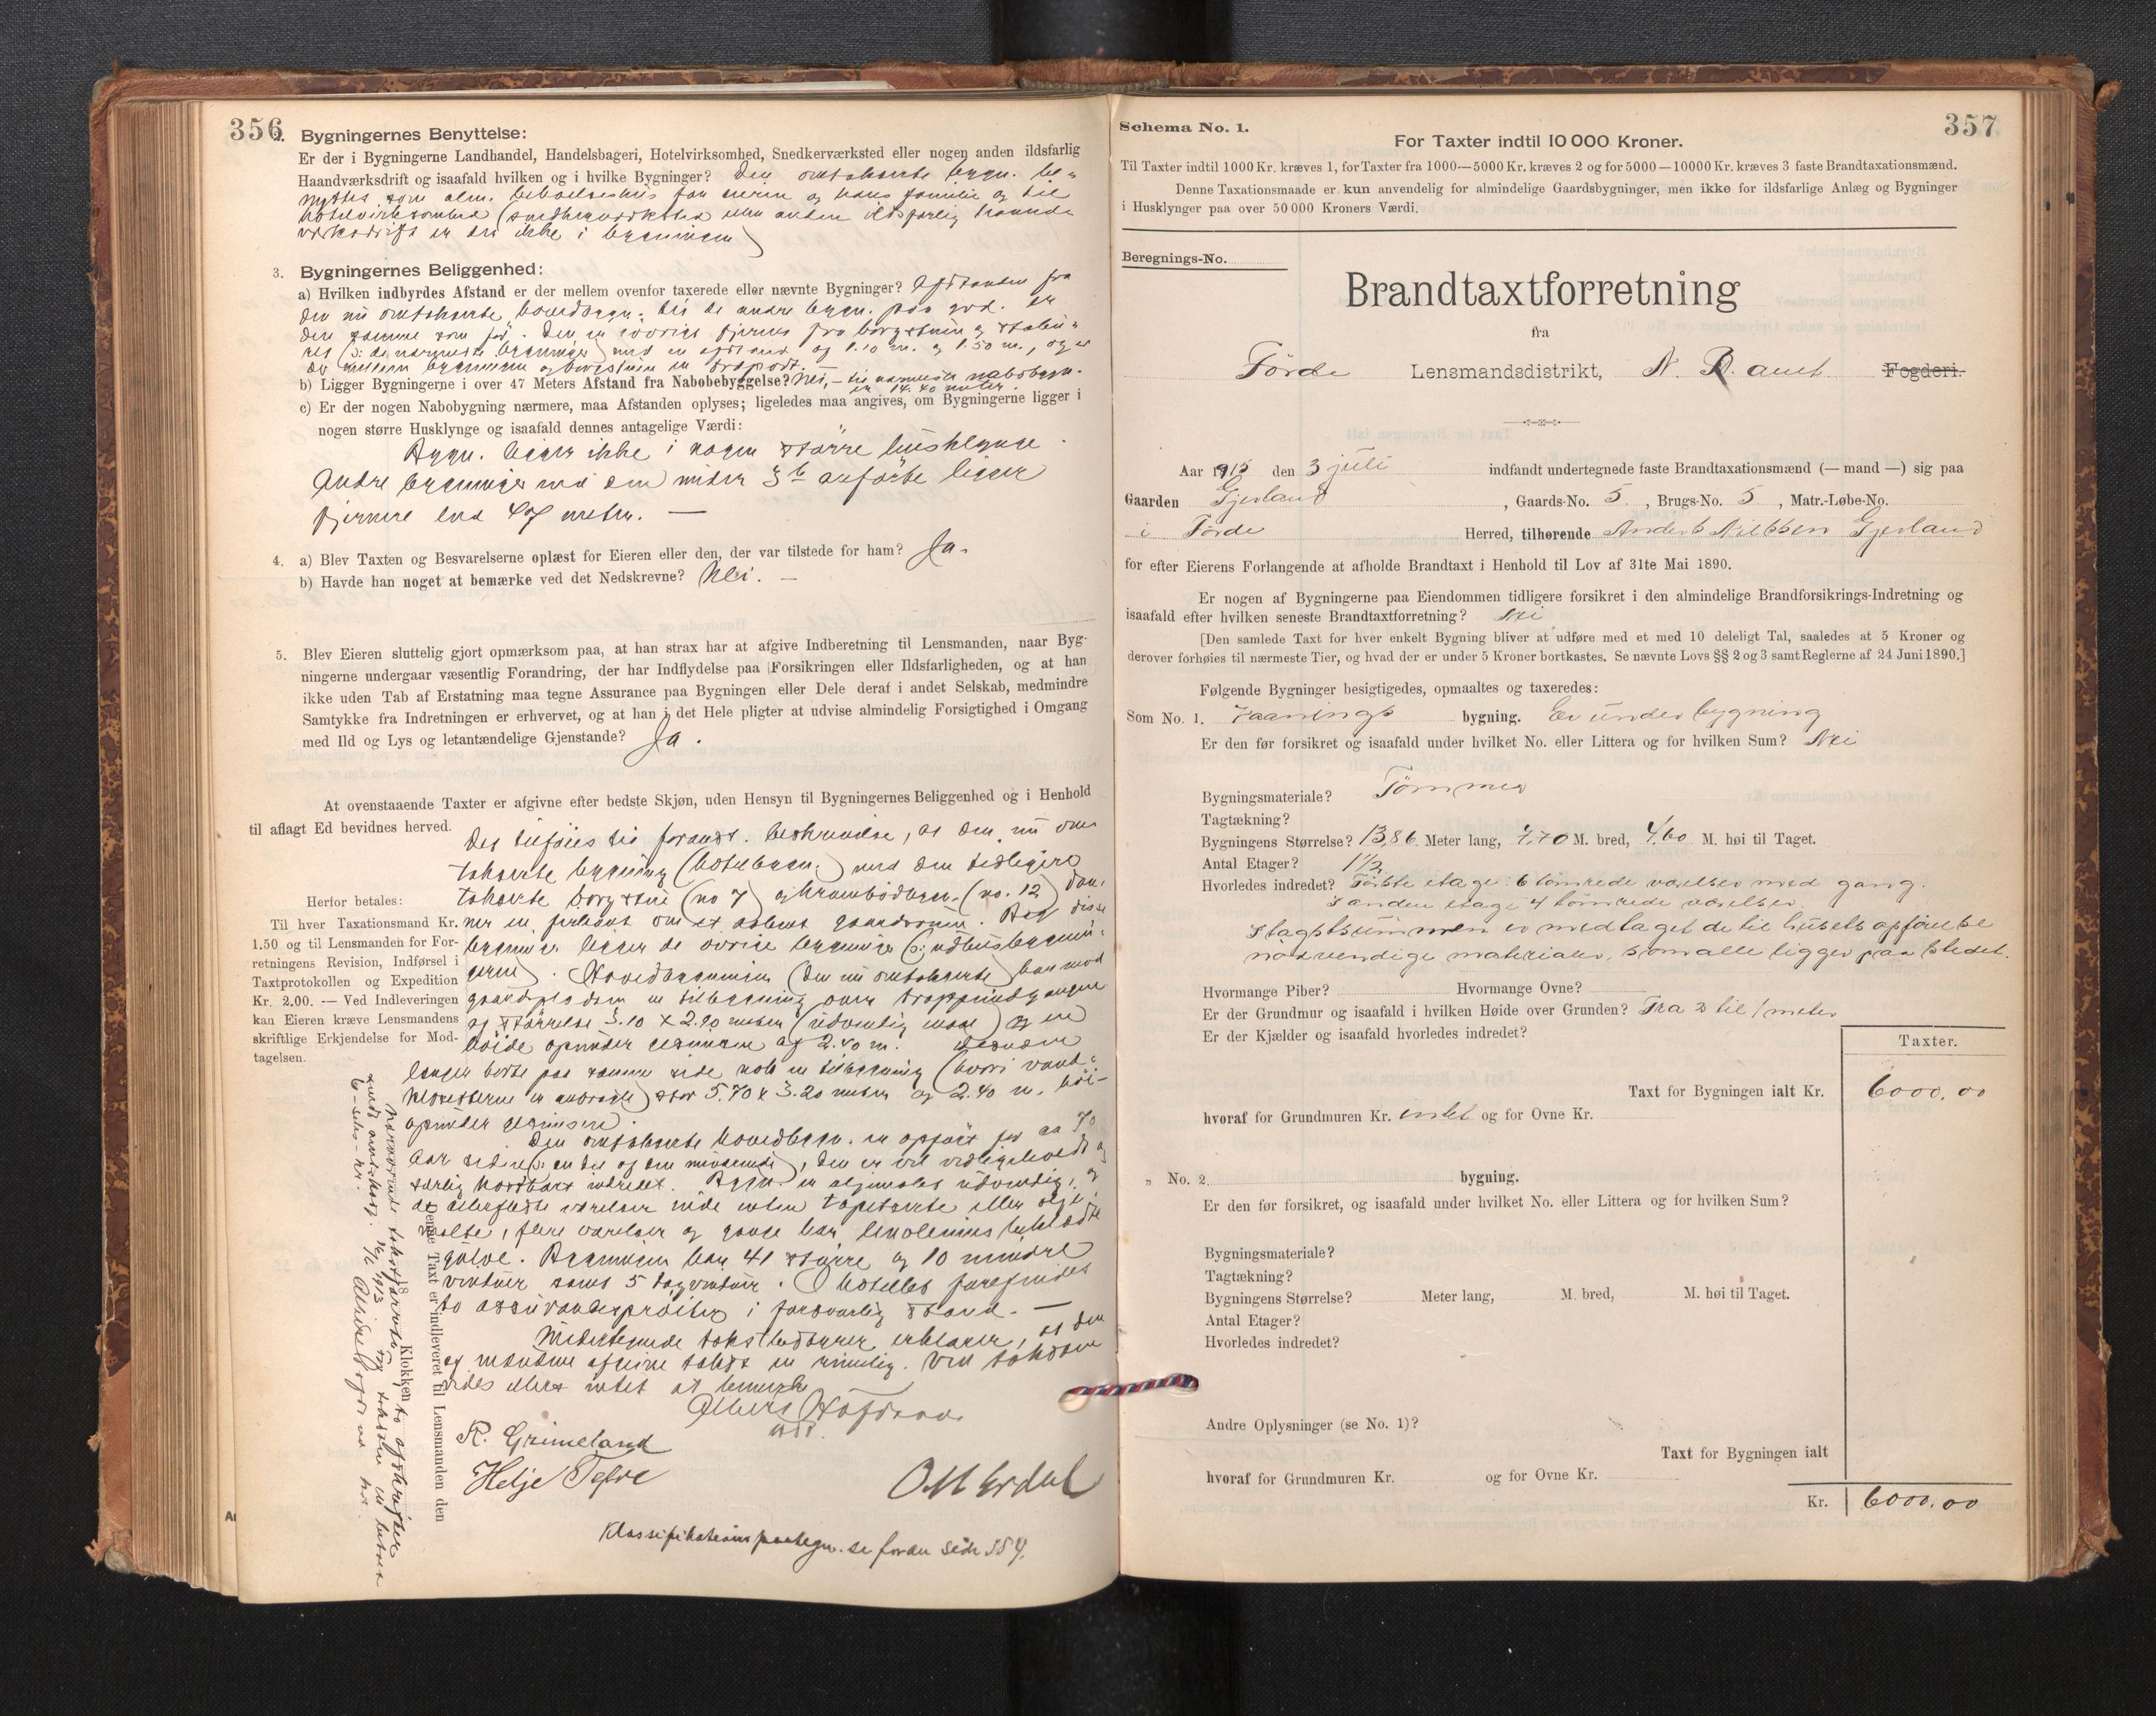 356
2. Bygningernes Benyttelse:
Er der i Bygningerne Landhandel, Handelsbageri, Hotelvirksomhed, Snedkerværksted eller nogen anden ildsfarlig
Haandværksdrift og isaafald hvilken og i hvilke Bygninger? Den omtakserte bygn. be-
nyttes som alm. beboelseshus for eieren og hans familie og til
hotelvirksomhed (snedkerverksted eller anden ildsfarlig haand-
verksdrift er der ikke i bygningen)
3. Bygningernes Beliggenhed:
a) Hvilken indbyrdes Afstand er der mellem ovenfor taxerede eller nævnte Bygninger? Afstanden fra
den nu omtakserte hovedbygn. til de andre bygn. paa grd. er
den samme som før. Den er iøvrigt fjernet fra borgstuen og stabu-
ret (ɔ: de nærmeste bygninger) med en afstand af 1.10 m. og 1.50 m., og er
der mellem bygningen og borgstuen en
b) Ligger Bygningerne i over 47 Meters Afstand fra Nabobebyggelse? Nei, - til nærmeste nabobygn.
er 14.40 meter.
c) Er der nogen Nabobygning nærmere, maa Afstanden oplyses; ligeledes maa angives, om Bygningerne ligger i
nogen større Husklynge og isaafald dennes antagelige Værdi:
Bygn. ligger ikke i nogen større husklynge.
Andre bygninger end den under 3 b anførte ligger
fjernere end 47 meter. —
4. a) Blev Taxten og Besvarelserne oplæst for Eieren eller den, der var tilstede for ham? Ja.
b) Havde han noget at bemærke ved det Nedskrevne? Nei. —
5. Blev Eieren sluttelig gjort opmærksom paa, at han strax har at afgive Indberetning til Lensmanden, naar Byg-
ningerne undergaar væsentlig Forandring, der har Indflydelse paa Forsikringen eller Ildsfarligheden, og at han
ikke uden Tab af Erstatning maa tegne Assurance paa Bygningen eller Dele deraf i andet Selskab, medmindre
Samtykke fra Indretningen er erhvervet, og at han i det Hele pligter at udvise almindelig Forsigtighed i Omgang
med Ild og Lys og letantændelige Gjenstande? Ja.
At ovenstaaende Taxter er afgivne efter bedste Skjøn, uden Hensyn til Bygningernes Beliggenhed og i Henhold
til aflagt Ed bevidnes herved.
Det tilføies til forandt. beskrivelse, at den nu om-
takserte bygning (hotelbygn.) med den tidligere
takserte borgstue (no 7) og krambodbygn. (no. 12) dan-
ner en firkant om et aabent gaardsrum. Bag disse
bygninger ligger de øvrige bygninger (ɔ: udhusbygnin-
gerne). Hovedbygningen (den nu omtakserte) har mod
gaardspladsen en tilbygning over trappeindgangen
af størrelse 3.10 x 2.90 meter (udvendig maal) og en
høide opunder gesimsen af 2.40 m. Desuden
længer borte paa samme side nok en tilbygning (hvori vand-
klosetterne er anbragte) stor 5.70 x 3.20 meter og 2.40 m. høi
opunder gesimsen.
Den omtakserte hovedbygn. er opført for ca 70
aar siden (ɔ: en del af den nuværende), den er vel vedligeholdt og
særlig kostbart indredet. Bygn. er oljemalet udvendig, og
de allerfleste værelser inde enten tapetserte eller olje-
malte, flere værelser og gange har linoleums beklædte
gulve. Bygningen har 41 større og 10 mindre
vinduer samt 5 tagvinduer. I hotellet forefindes
to assurandsprøiter i forsvarlig stand. —
Undertegnede takstbestyrer erklærer, at den
af mændene afgivne takst er rimelig. Ved taksten
vides ellers intet at bemerke
R. Grimeland
Helje Tefre
O. M. Erdal
Klassifikationspaategn. se foran side 354.
Herfor betales:
Til hver Taxationsmand Kr.
1.50 og til Lensmanden for For-
retningens Revision, Indførsel i
Taxtprotokollen og Expedition
Kr. 2.00. — Ved Indleveringen
kan Eieren kræve Lensmandens
skriftlige Erkjendelse for Mod-
tagelsen.
Denne Taxt er indleveret til Lensmanden den
18 Klokken
357
Schema No. 1.
For Taxter indtil 10 000 Kroner.
Til Taxter indtil 1000 Kr. kræves 1, for Taxter fra 1000—5000 Kr. kræves 2 og for 5000—10000 Kr. kræves 3 faste Brandtaxationsmænd.
Denne Taxationsmaade er kun anvendelig for almindelige Gaardsbygninger, men ikke for ildsfarlige Anlæg og Bygninger
i Husklynger paa over 50 000 Kroners Værdi.
Beregnings-No.
Brandtaxtforretning
fra
Förde Lensmandsdistrikt, N. B. amt Fogderi.
Aar 1915 den 3 juli indfandt undertegnede faste Brandtaxationsmænd (— mand —) sig paa
Gaarden Gjerland, Gaards-No. 5, Brugs-No. 5, Matr.-Løbe-No.
i Förde Herred, tilhørende Anders Nilssen Gjerland
for efter Eierens Forlangende at afholde Brandtaxt i Henhold til Lov af 31te Mai 1890.
Er nogen af Bygningerne paa Eiendommen tidligere forsikret i den almindelige Brandforsikrings-Indretning og
isaafald efter hvilken seneste Brandtaxtforretning? Nei
[Den samlede Taxt for hver enkelt Bygning bliver at udføre med et med 10 deleligt Tal, saaledes at 5 Kroner og
derover forhøies til nærmeste Tier, og hvad der er under 5 Kroner bortkastes. Se nævnte Lovs §§ 2 og 3 samt Reglerne af 24 Juni 1890.]
Følgende Bygninger besigtigedes, opmaaltes og taxeredes:
Som No. 1. Vaanings bygning. Er under bygning
Er den før forsikret og isaafald under hvilket No. eller Littera og for hvilken Sum? Nei
Bygningsmateriale? Tömmer
Tagtækning?
Bygningens Størrelse? 13,86 Meter lang, 7,70 M. bred, 4,60 M. høi til Taget.
Antal Etager? 1½
Hvorledes indredet? Förste etage: 6 tömrede værelser med gang.
I anden etage 4 tömrede værelser.
I tagstsummen er medtaget de til husets opförelse
nödvendige materialer, som alle ligger paa stedet.
Hvormange Piber? Hvormange Ovne?
Er der Grundmur og isaafald i hvilken Høide over Grunden? Fra 2 til 1 meter
Er der Kjælder og isaafald hvorledes indredet?
Taxter.
Taxt for Bygningen ialt Kr. 6000,00
hvoraf for Grundmuren Kr. intet og for Ovne Kr.
„ No. 2. bygning.
Er den før forsikret, og isaafald under hvilket No. eller Littera og for hvilken Sum?
Bygningsmateriale?
Tagtækning?
Bygningens Størrelse? Meter lang, M. bred, M. høi til Taget.
Antal Etager?
Hvorledes indredet?
Andre Oplysninger (se No. 1)?
Taxt for Bygningen ialt
hvoraf for Grundmuren Kr. og for Ovne Kr.
Kr. 6000,00